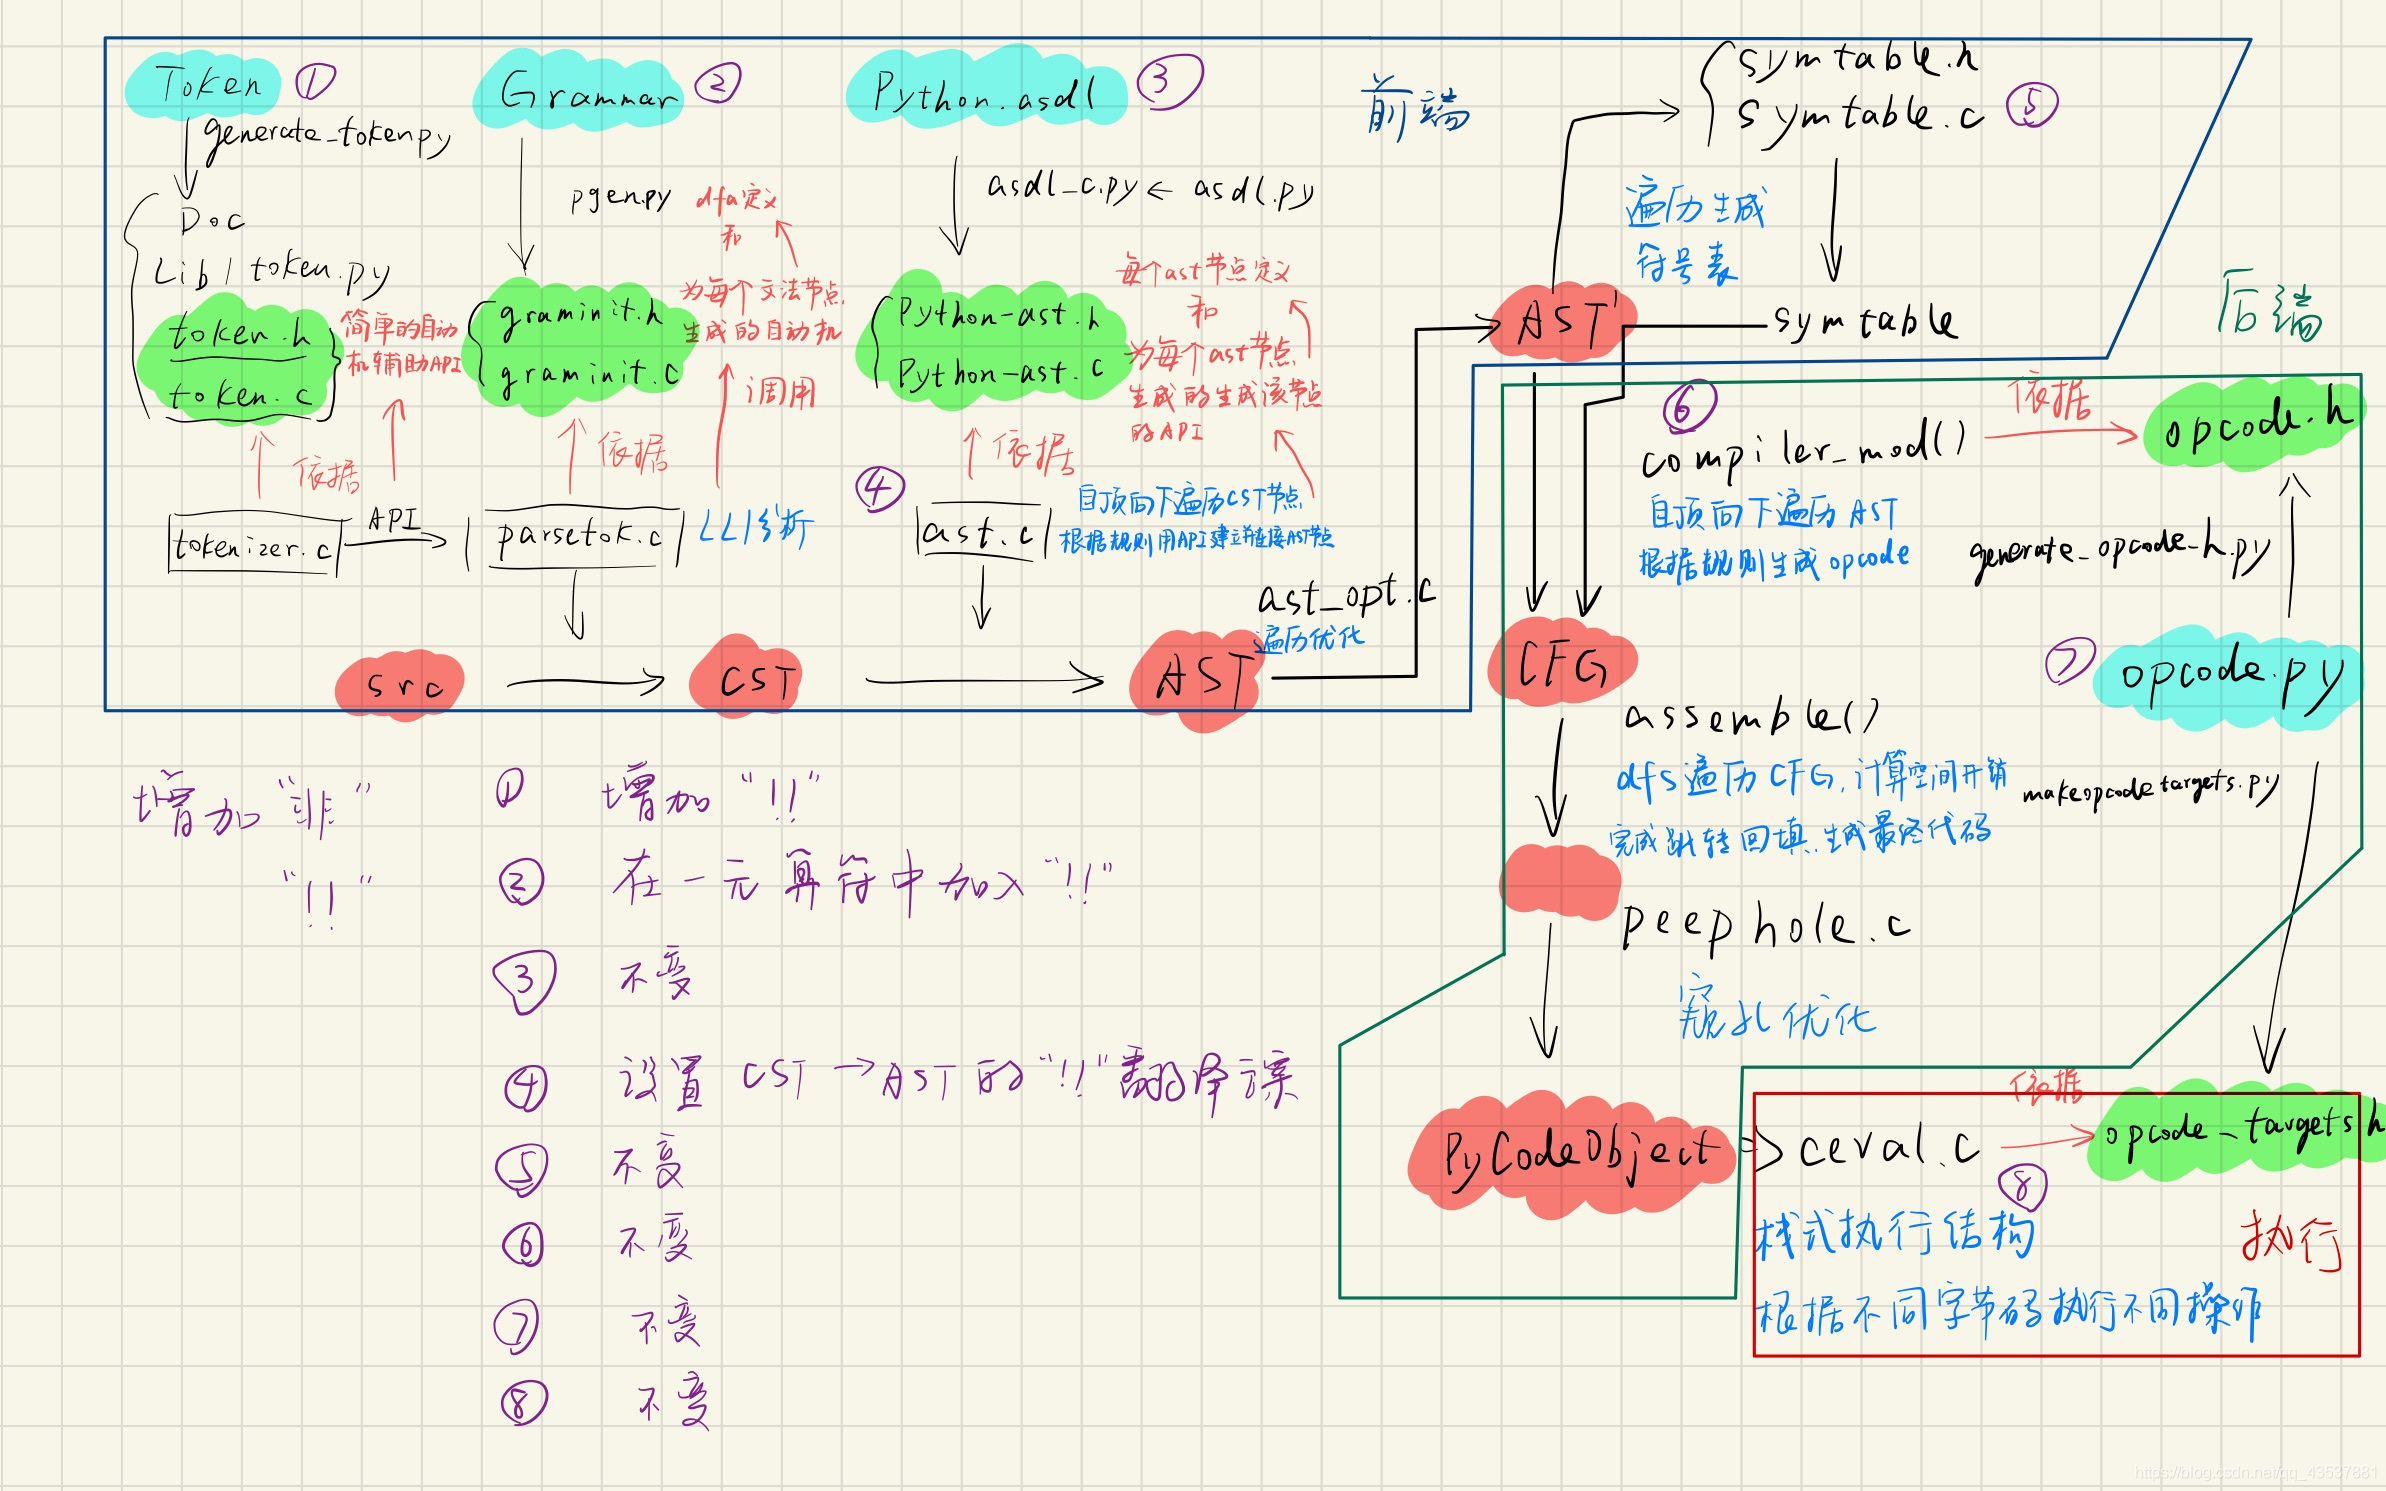 Token ①
generate_token.py
Doc
Lib / token.py
token.h
token.c
简单的自动
机辅助API
依据
tokenizer.c
API
Grammar ②
pgen.py
dfa定义
和
为每个文法节点
生成的自动机
graminit.h
graminit.c
调用
依据
parsetok.c
LL1分析
Python.asdl ③
asdl_c.py ← asdl.py
每个ast节点定义
和
为每个ast节点
生成的生成该节点
的API
Python-ast.h
Python-ast.c
依据
④
ast.c
自顶向下遍历CST节点
根据规则用API建立并链接AST节点
src
CST
AST
ast_opt.c
遍历优化
前端
symtable.h
symtable.c ⑤
遍历生成
符号表
AST'
symtable
后端
⑥
compiler_mod()
依据
opcode.h
自顶向下遍历AST
根据规则生成opcode
generate_opcode_h.py
CFG
⑦
opcode.py
assemble()
dfs遍历CFG,计算空间开销
完成跳转回填,生成最终代码
makeopcodetargets.py
peephole.c
窥孔优化
PyCodeObject
ceval.c
依据
opcode_targets.h
⑧
栈式执行结构
执行
根据不同字节码执行不同操作
增加“非”
“!!”
① 增加“!!”
② 在一元算符中加入“!!”
③ 不变
④ 设置 CST→AST的“!!”翻译方案
⑤ 不变
⑥ 不变
⑦ 不变
⑧ 不变
https://blog.csdn.net/qq_43537881